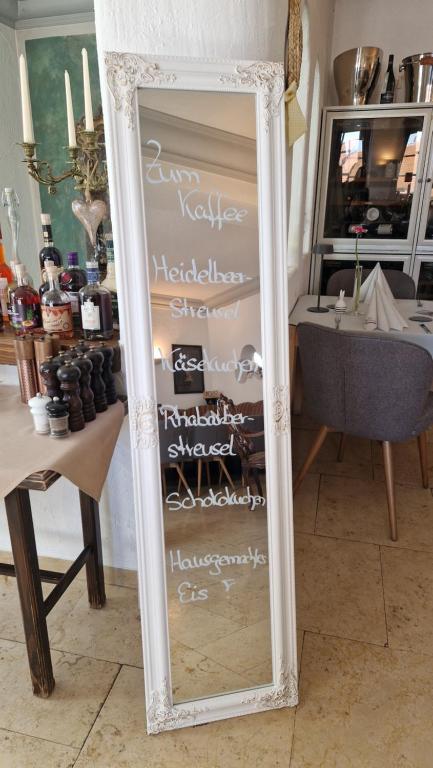 Zum
Kaffee
Heidelbeer-
Streusel
Käsekuchen
Rhabarber-
streusel
Schokokuchen
Hausgemachtes
Eis